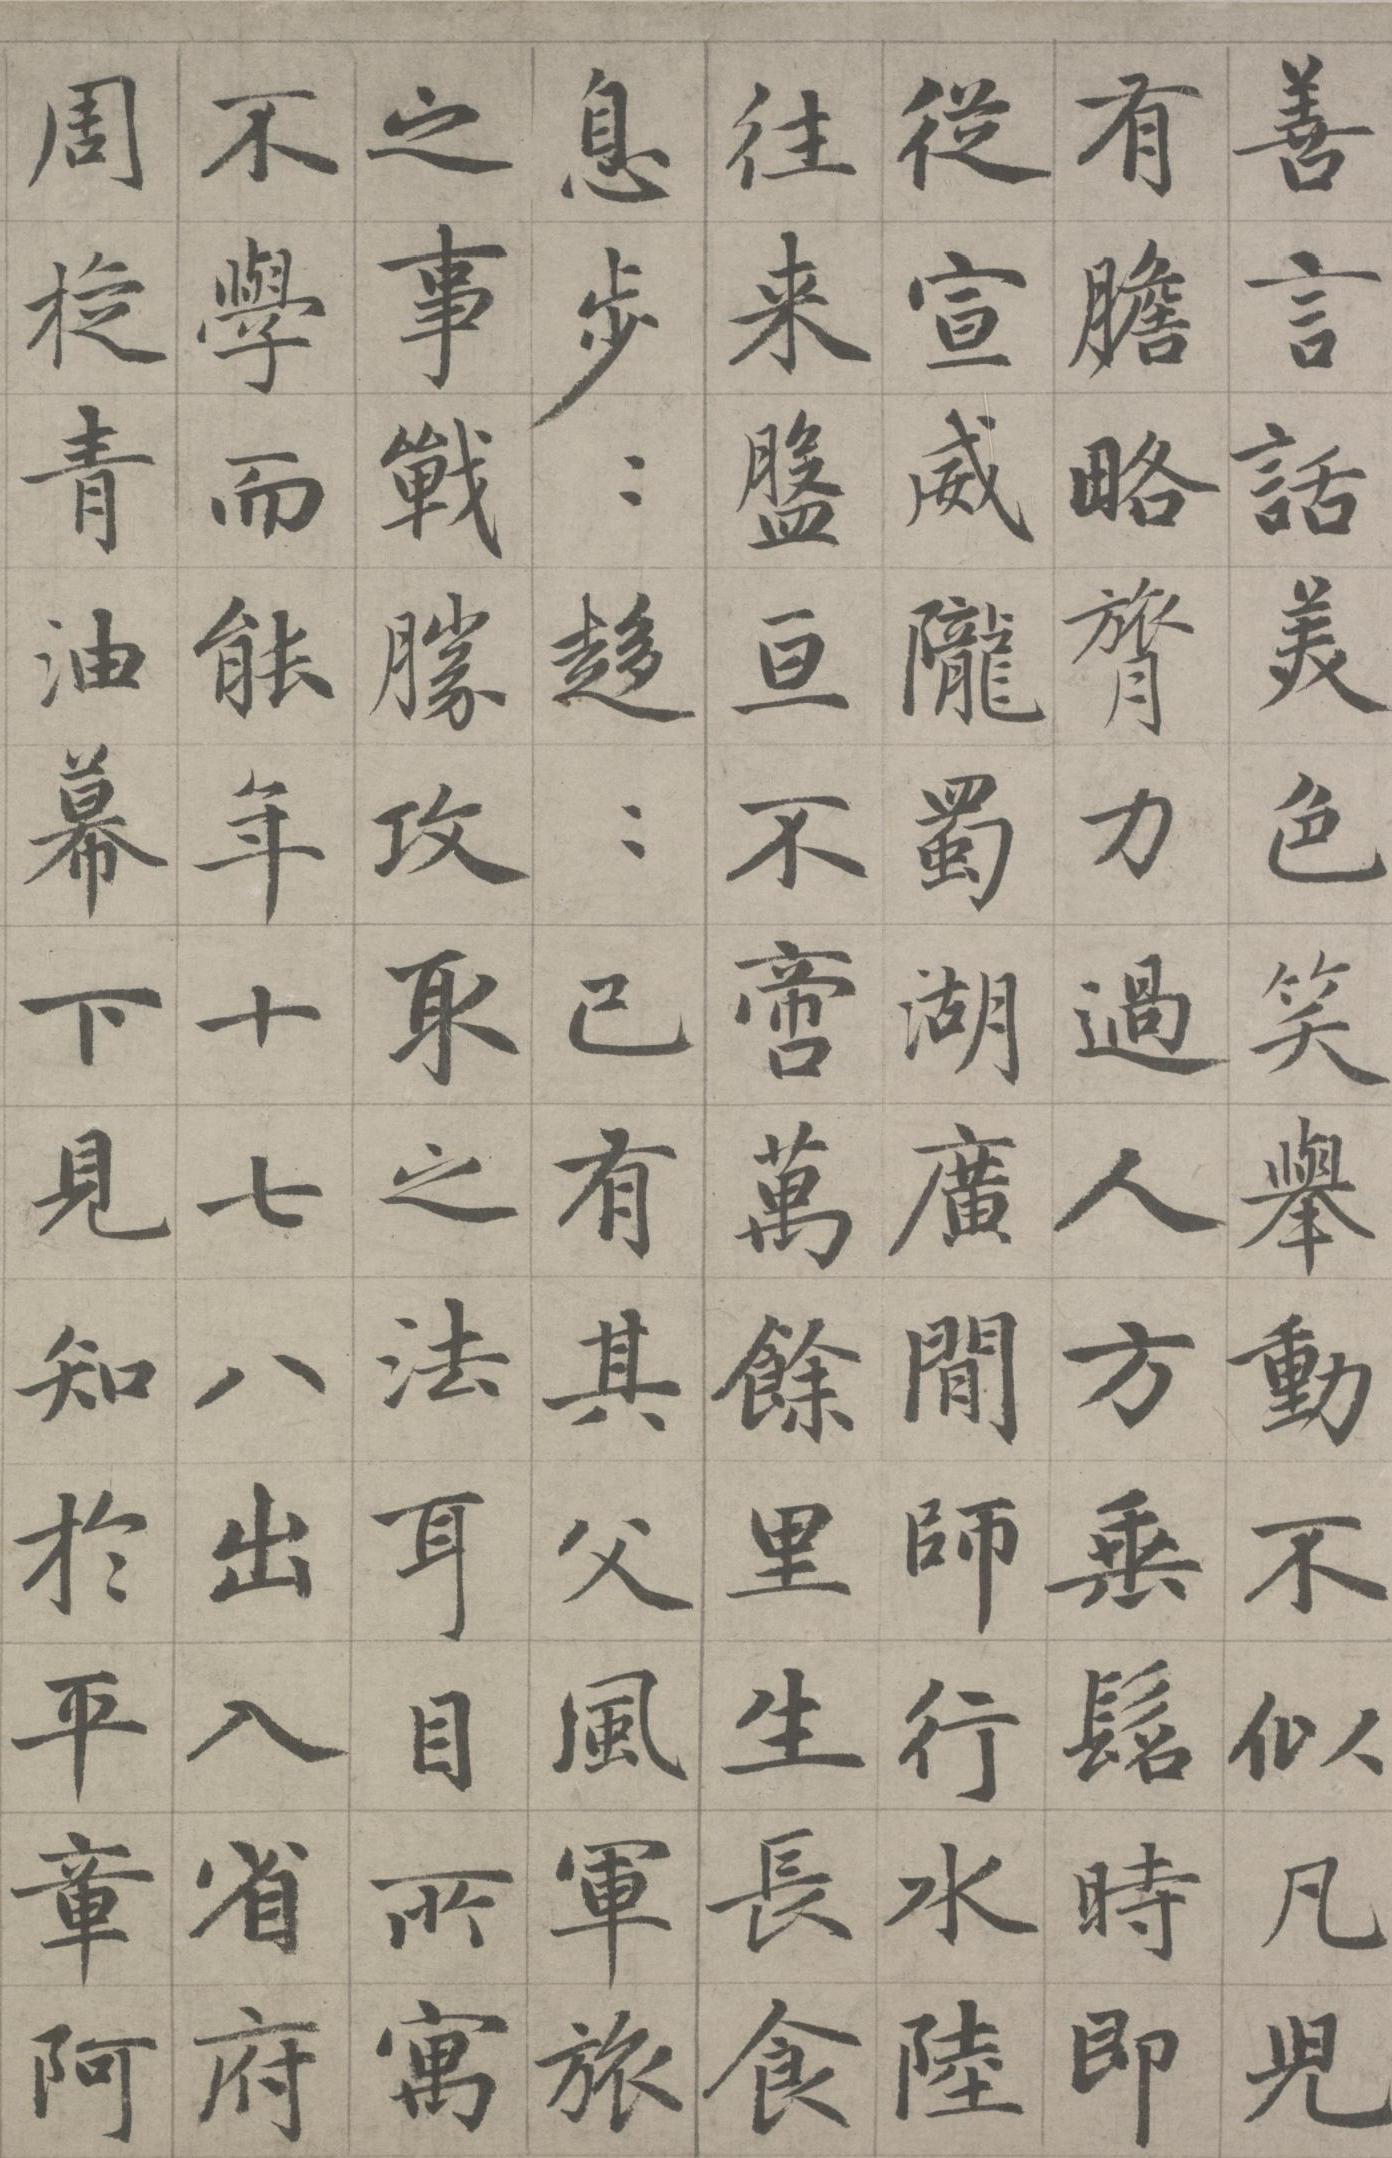 善言話美色笑舉動不似凡兒
有膽略膂力過人方垂髫時即
從宣威隴蜀湖廣間師行水陸
往来盤亘不啻萬餘里生長食
息步〻趍〻已有其父風軍旅
之事戰勝攻取之法耳目所寓
不學而能年十七八出入省府
周旋青油幕下見知於平章阿